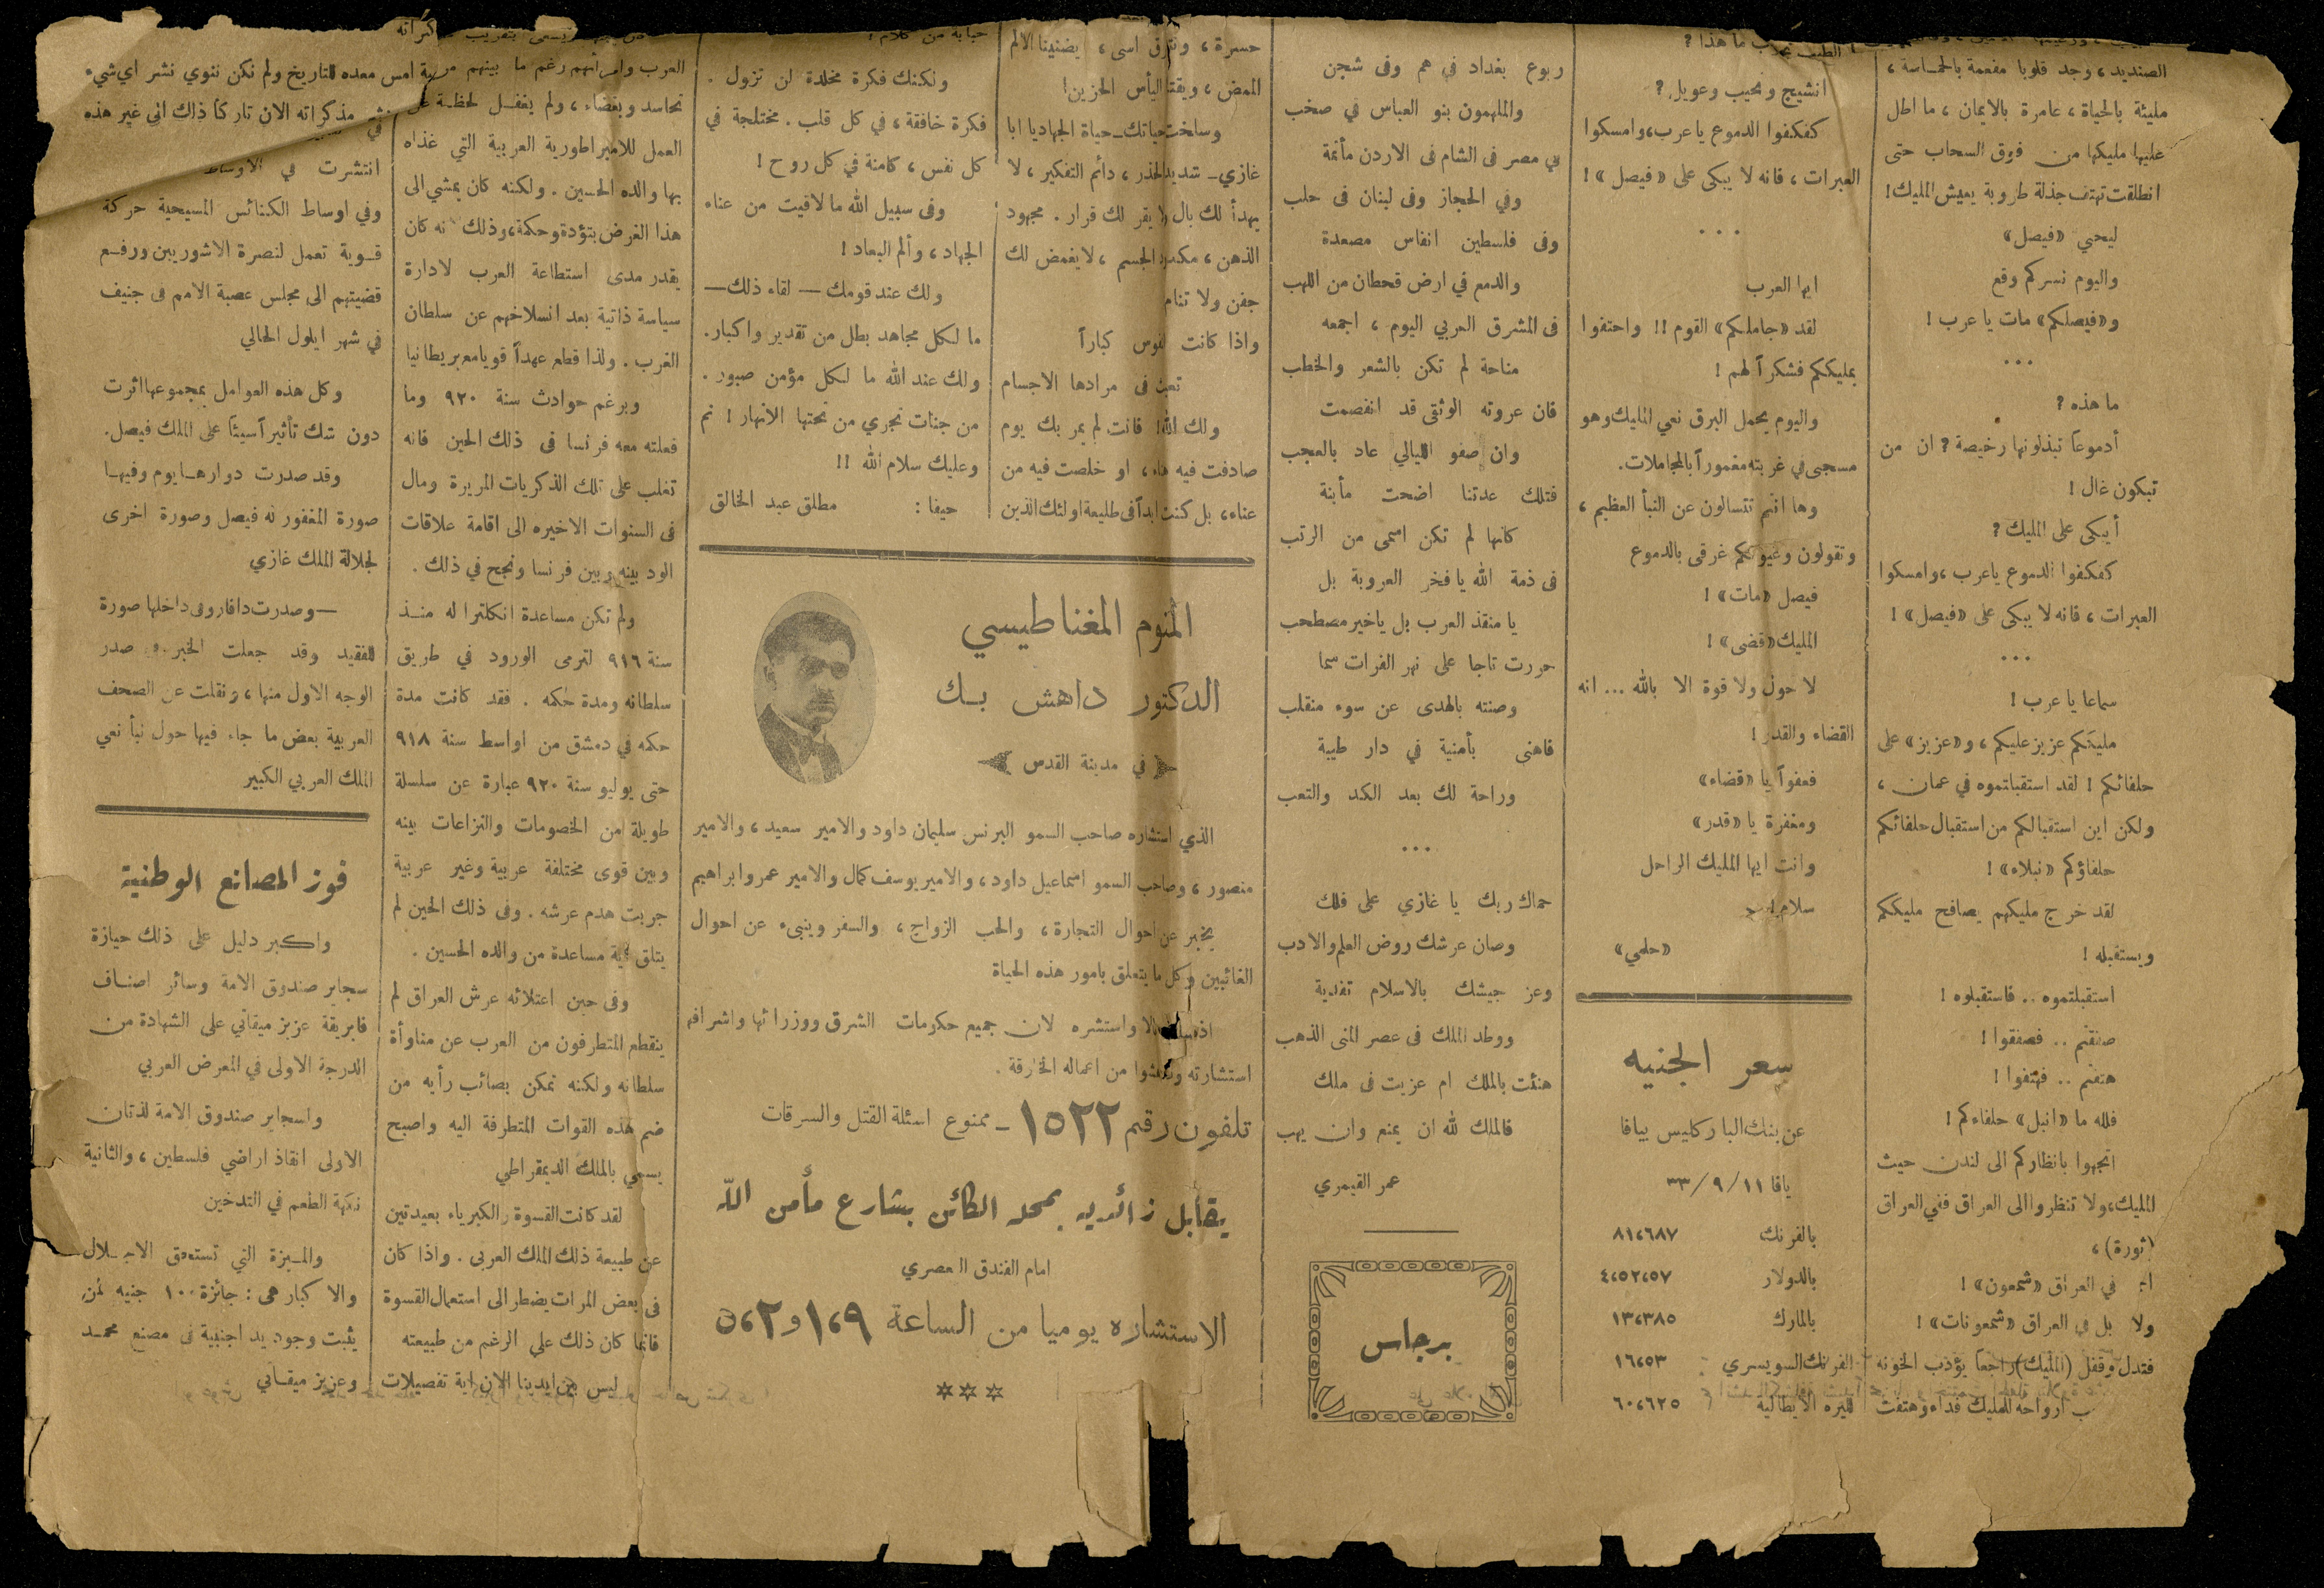 الصنديد، وجد قلوبا مفعمة بالحماسة،
مليئة بالحياة، عامرة بالايمان، ما اطل
عليها مليكها من فوق السحاب حتى
انطلقت تهتف جذلة طروبة يعيش المليك!
ليحي «فيصل»
واليوم نسركم وقع
و«فيصلكم» مات يا عرب!
...
ما هذه?
أدموعاً تبذلونها رخيصة? ان من
تبكون غال!
أيبكى على المليك?
كفكفوا الدموع ياعرب، وامسكوا
العبرات، فانه لا يبكى على «فيصل»!
...
سماعا يا عرب!
مليككم عزيز عليكم، و«عزيز» على
حلفائكم! لقد استقبلتموه في عمان،
ولكن اين استقبالكم من استقبال حلفائكم
حلفاؤكم «نبلاء»!
لقد خرج مليكهم يصافح مليككم
ويستقبله!
استقبلتموه.. فاستقبلوه!
صفقتم.. فصفقوا!
هتفتم.. فهتفوا!
فلله ما «انبل» حلفاءكم!
اتجهوا بانظاركم الى لندن حيث
المليك، ولا تنظروا الى العراق ففي العراق
(ثورة)،
في العراق «شمعون»!
ولا بل في العراق «شمعونات»!
فتدل وقفل (المليك) راجعاً يؤدب الخونه
ارواحه للمليك فداء وهتفت
ما هذا?
انشيج ونحيب وعويل?
كفكفوا الدموع ياعرب، وامسكوا
العبرات، فانه لا يبكى على «فيصل»!
...
ايها العرب
لقد «جاملكم» القوم!! واحتفوا
بمليككم فشكراً لهم!
واليوم يحمل البرق نعي المليك وهو
مسجى في غربته مغموراً بالمجاملات.
وها انتم تتسالون عن النبأ العظيم،
وتقولون وعيونكم غرقى بالدموع
فيصل «مات»!
المليك «قضى»!
لا حول ولا قوة الا بالله... انه
القضاء والقدر!
فعفواً يا «قضاء»
ومغفرة يا «قدر»
وانت ايها المليك الراحل
سلام!
«حلمي»
سعر الجنيه
عن بنك الباركليس بيافا
يافا ١١/٩/٣٣
بالفرنك ٨١،٦٨٧
بالدولار ٤،٥٢،٥٧
بالمارك ١٣،٣٨٥
الفرنك السويسري ١٦،٥٣
الليره الايطالية ٦٠،٦٢٥
ربوع بغداد في هم وفى شجن
والملهمون بنو العباس في صخب
في مصر فى الشام فى الاردن مأتمة
وفي الحجاز وفى لبنان فى حلب
وفى فلسطين انفاس مصعدة
والدمع في ارض قحطان من اللهب
فى المشرق العربي اليوم، اجمعه
مناحة لم تكن بالشعر والخطب
فان عروته الوثقى قد انفصمت
وان صفو الليالي عاد بالعجب
فتلك عدتنا اضحت مأبنة
كانها لم تكن اسمى من الرتب
فى ذمة الله يا فخر العروبة بل
يا منقذ العرب بل ياخير مصطحب
حررت تاجا على نهر الفرات سما
وصنته بالهدى عن سوء منقلب
فاهنى بأمنية في دار طيبة
وراحة لك بعد الكد والتعب
...
حماك ربك يا غازي على فلك
وصان عرشك روض العلم والادب
وعز جيشك بالاسلام تفدية
ووطد الملك فى عصر المنى الذهب
هنئت بالملك ام عزيت فى ملك
فالملك لله ان يمنع وان يهب
عمر القيمري
برجاس
حسرة، ونترق اسى، يضنينا الالم
الممض، ويقتا اليأس الحزين!
وسلخت حياتك ـ حياة الجهاد يا ابا
غازي ـ شديد الحذر، دائم التفكير، لا
يهدأ لك بال ولا يقر لك قرار. مجهود
الذهن، مكدود الجسم، لا يغمض لك
جفن ولا تنام
واذا كانت النفوس كباراً
تعبت فى مرادها الاجسام
ولك الله! فانت لم يمر بك يوم
صادفت فيه هناء، او خلصت فيه من
عناء، بل كنت ابداً فى طليعة اولئك الذين
ولكنك فكرة مخلدة لن تزول.
فكرة خافقة، في كل قلب. مختلجة في
كل نفس، كامنة في كل روح!
وفى سبيل الله ما لاقيت من عناء
الجهاد، وألم البعاد!
ولك عند قومك — لقاء ذلك —
ما لكل مجاهد بطل من تقدير واكبار.
ولك عند الله ما لكل مؤمن صبور.
من جنات تجري من تحتها الانهار! نم
وعليك سلام الله!!
حيفا: مطلق عبد الخالق
المنوم المغناطيسي
الدكتور داهش بك
في مدينة القدس
الذي استشاره صاحب السمو البرنس سليمان داود والامير سعيد، والامير
منصور، وصاحب السمو اسماعيل داود، والامير يوسف كمال والامير عمرو ابراهيم
يخبر عن احوال التجارة، والحب الزواج، والسفر وينبىء عن احوال
الغائبين وكل ما يتعلق بامور هذه الحياة
واستشره لان جميع حكومات الشرق ووزرائها واشرافها
استشارته من اعماله الخارقة.
تلفون رقم ١٥٢٢ ـ ممنوع اسئلة القتل والسرقات
يقابل زائريه بمحله الكائن بشارع مأمن الله
امام الفندق العصري
الاستشاره يوميا من الساعة ٩،١ و ٥،٢
***
العرب وامرائهم رغم ما بينهم من
تحاسد وبغضاء، ولم يغفل لحظة عن
العمل للامبراطورية العربية التي غذاه
بها والده الحسين. ولكنه كان يمشي الى
هذا الغرض بتؤدة وحكمة، وذلك انه كان
يقدر مدى استطاعة العرب لادارة
سياسة ذاتية بعد انسلاخهم عن سلطان
الغرب. ولذا قطع عهداً قويا مع بريطانيا
وبرغم حوادث سنة ٩٢٠ وما
فعلته معه فرنسا فى ذلك الحين فانه
تغلب على تلك الذكريات المريرة ومال
فى السنوات الاخيره الى اقامة علاقات
الود بينه وبين فرنسا ونجح في ذلك.
ولم تكن مساعدة انكلترا له منذ
سنة ٩١٦ لترمى الورود في طريق
سلطانه ومدة حكمه. فقد كانت مدة
حكمه في دمشق من اواسط سنة ٩١٨
حتى يوليو سنة ٩٢٠ عبارة عن سلسلة
طويلة من الخصومات والنزاعات بينه
وبين قوى مختلفة عربية وغير عربية
جربت هدم عرشه. وفى ذلك الحين لم
يتلق اية مساعدة من والده الحسين.
وفى حين اعتلائه عرش العراق لم
ينقطع المتطرفون من العرب عن مناوأة
سلطانه ولكنه تمكن بصائب رأيه من
ضم هذه القوات المتطرفة اليه واصبح
يسمي بالملك الديمقراطي
لقد كانت القسوة والكبرياء بعيدتين
عن طبيعة ذلك الملك العربى. واذا كان
فى بعض المرات يضطر الى استعمال القسوة
فانما كان ذلك على الرغم من طبيعته
ليس بين ايدينا الان اية تفصيلات
امس معده للتاريخ ولم نكن ننوي نشر اي شيء
مذكراته الان تاركاً ذلك الى غير هذه
انتشرت في الاوساط
وفي اوساط الكنائس المسيحية حركة
قوية تعمل لنصرة الاشوريين ورفع
قضيتهم الى مجلس عصبة الامم فى جنيف
في شهر ايلول الحالي
وكل هذه العوامل بمجموعها اثرت
دون شك تأثيراً سيئاً على الملك فيصل.
وقد صدرت دوارها يوم وفيها
صورة المغفور له فيصل وصورة اخرى
لجلالة الملك غازي
—وصدرت دافار وفى داخلها صورة
للفقيد وقد جعلت الخبر صدر
الوجه الاول منها، ونقلت عن الصحف
العربية بعض ما جاء فيها حول نبأ نعي
الملك العربي الكبير
فوز المصانع الوطنية
واكبر دليل على ذلك حيازة
سجاير صندوق الامة وسائر اصناف
فابريقة عزيز ميقاتي على الشهادة من
الدرجة الاولى في المعرض العربي
ولسجاير صندوق الامة لذتان
الاولى انقاذ اراضي فلسطين، والثانية
نكهة الطعم في التدخين
والميزة التي تستحق الاجلال
والاكبار هى: جائزة ١٠٠ جنيه لمن
يثبت وجود يد اجنبية فى مصنع محمد
وعزيز ميقاتي